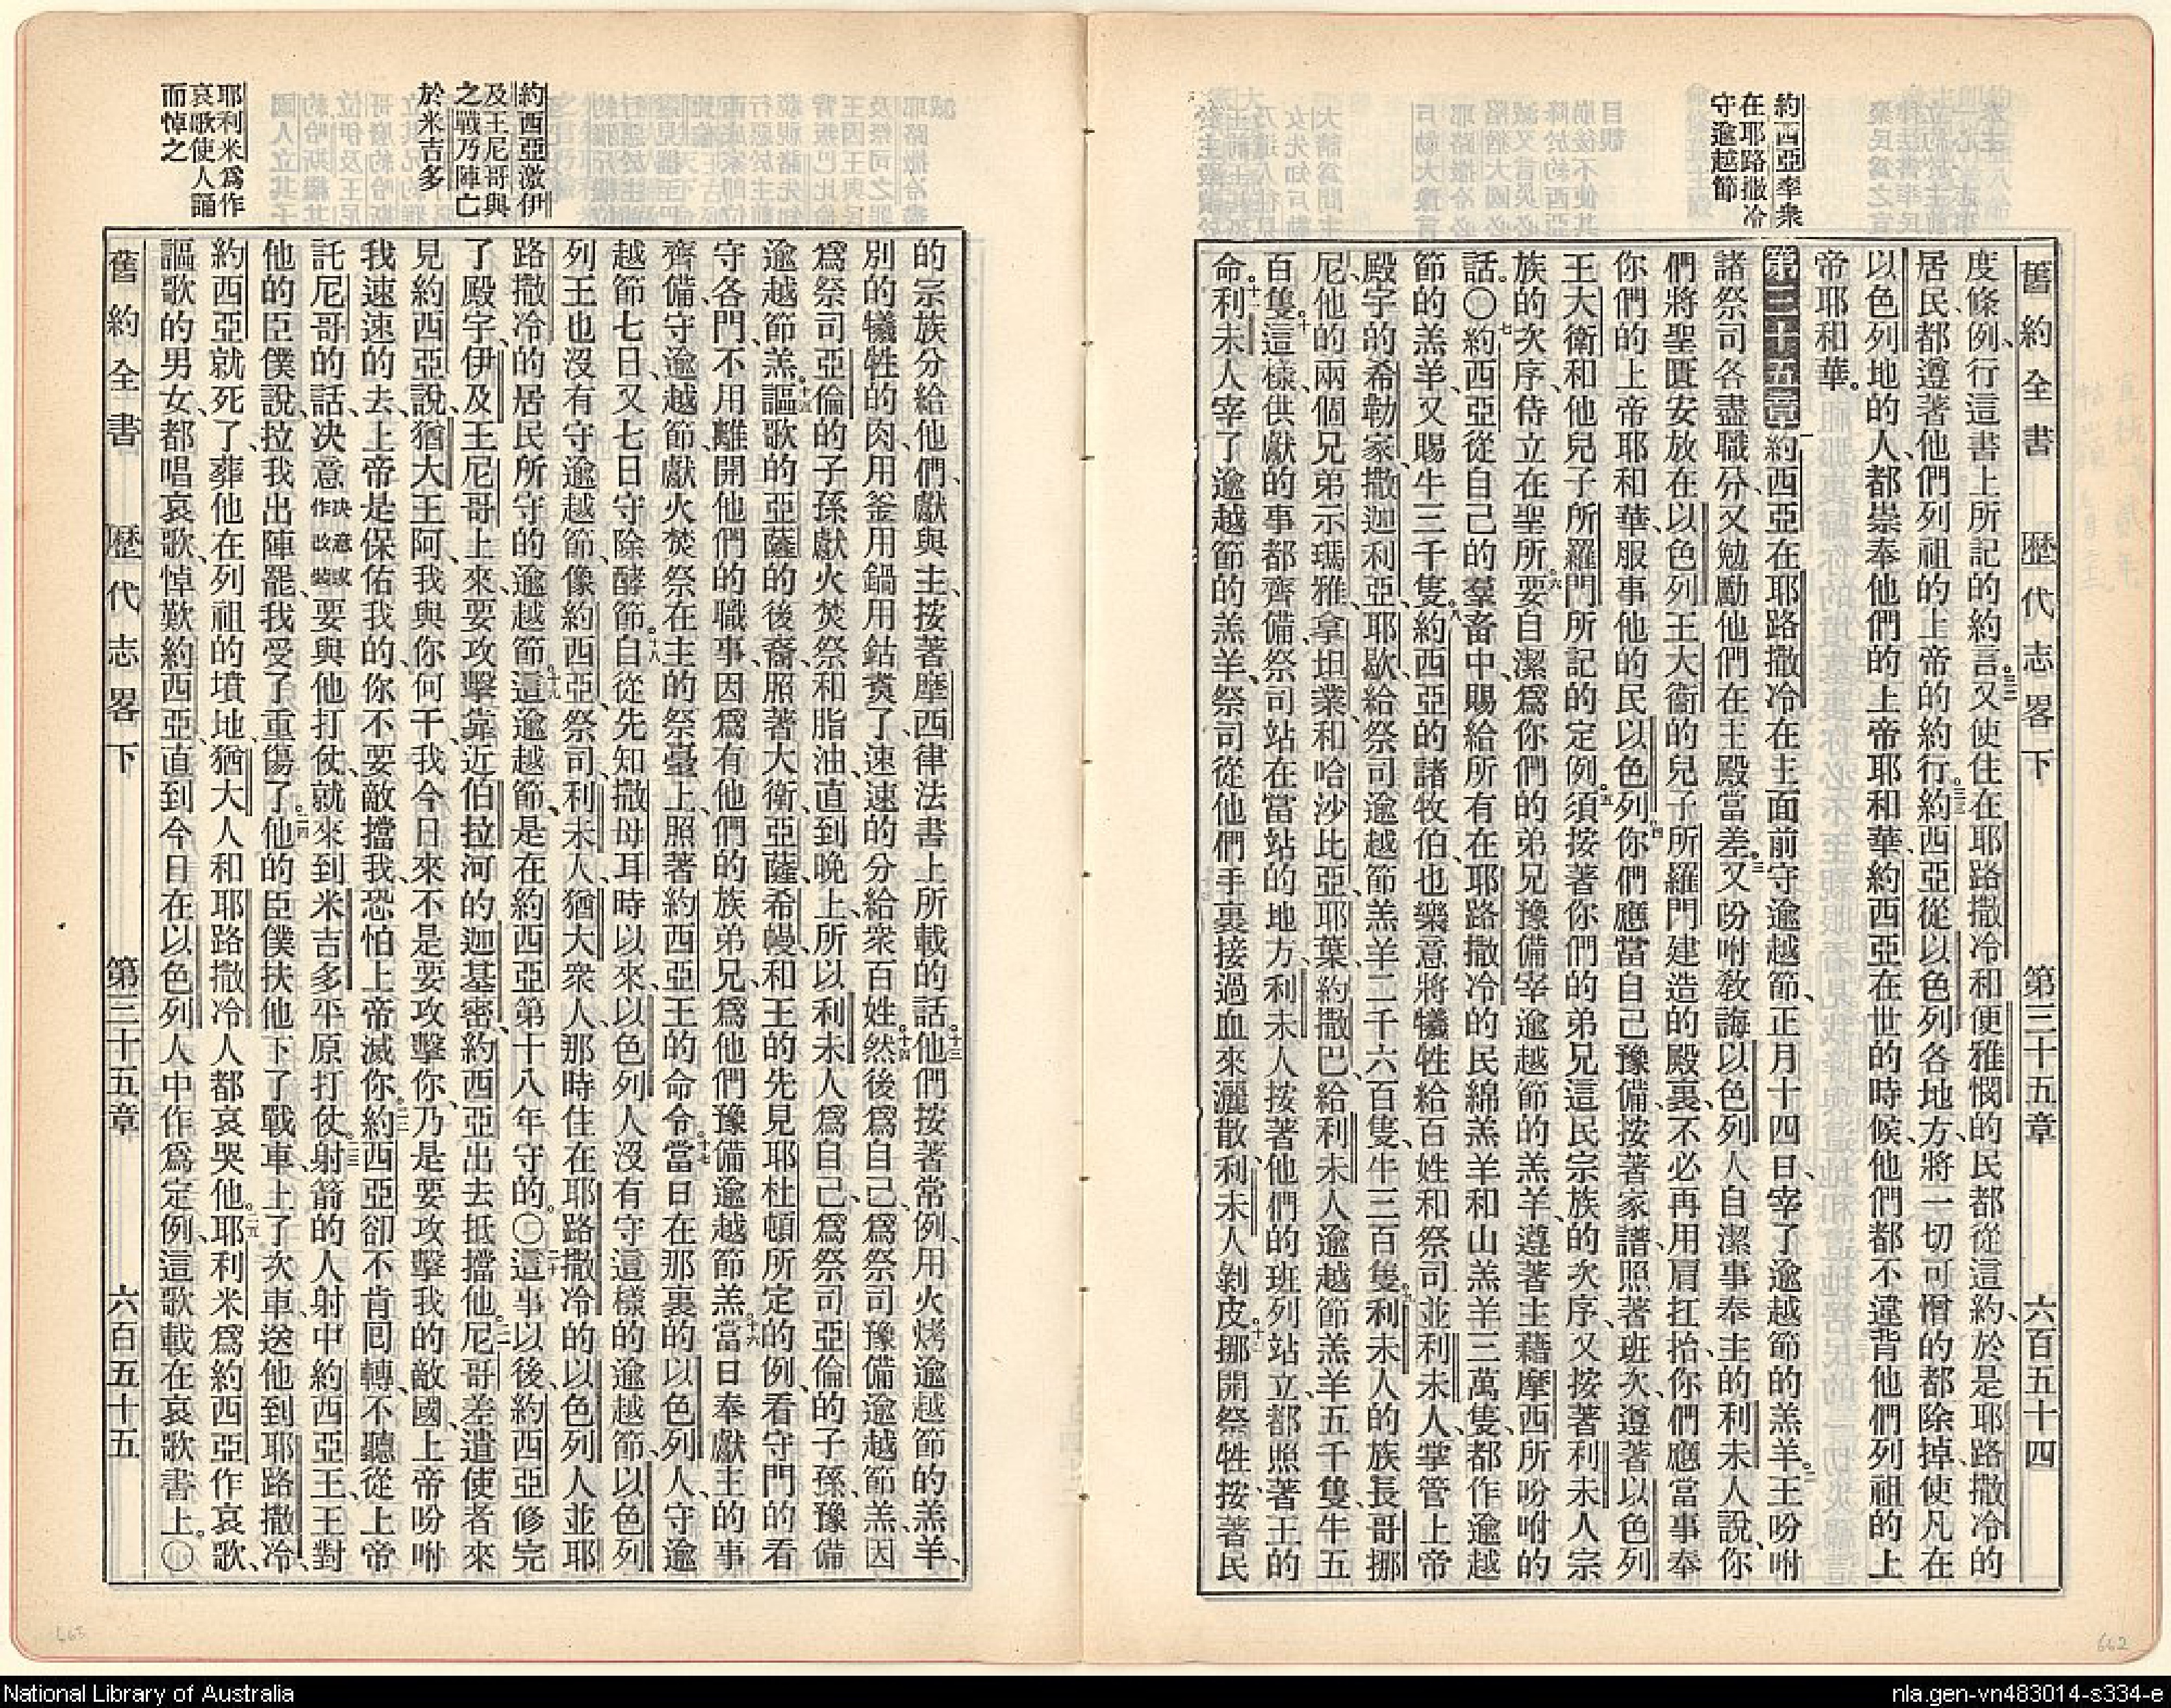 舊約全書　歷代志畧下　第三十五章　六百五十四
約西亞率衆
在耶路撒冷
守逾越節
度條例、行這書上所記的約言。三二又使住在耶路撒冷和便雅憫的民都從這約、於是耶路撒冷的
居民、都遵著他們列祖的上帝的約行。三三約西亞從以色列各地方、將一切可憎的都除掉、使凡在
以色列地的人、都崇奉他們的上帝耶和華、約西亞在世的時候、他們都不違背他們列祖的上
帝耶和華。
第三十五章 一約西亞在耶路撒冷在主面前守逾越節、正月十四日、宰了逾越節的羔羊。二王吩咐
諸祭司各盡職分、又勉勵他們在主殿當差。三又吩咐敎誨以色列人自潔事奉主的利未人說、你
們將聖匱安放在以色列王大衛的兒子所羅門建造的殿裏、不必再用肩扛抬、你們應當事奉
你們的上帝耶和華、服事他的民以色列。四你們應當自己豫備、按著家譜、照著班次、遵著以色列
王大衛和他兒子所羅門所記的定例。五須按著你們的弟兄這民宗族的次序、又按著利未人宗
族的次序、侍立在聖所。六要自潔爲你們的弟兄豫備宰逾越節的羔羊、遵著主藉摩西所吩咐的
話。〇七約西亞從自己的羣畜中、賜給所有在耶路撒冷的民綿羔羊和山羔羊三萬隻、都作逾越
節的羔羊、又賜牛三千隻。八約西亞的諸牧伯、也樂意將犧牲給百姓和祭司並利未人、掌管上帝
殿宇的希勒家、撒迦利亞、耶歇、給祭司逾越節羔羊二千六百隻、牛三百隻。九利未人的族長哥挪
尼、他的兩個兄弟示瑪雅、拿坦業、和哈沙比亞、耶葉、約撒巴、給利未人逾越節羔羊五千隻、牛五
百隻。十這樣、供獻的事都齊備、祭司站在當站的地方、利未人按著他們的班列站立、都照著王的
命。十一利未人宰了逾越節的羔羊、祭司從他們手裏接過血來灑散、利未人剝皮。十二挪開祭牲、按著民
約西亞激伊
及王尼哥與
之戰乃陣亡
於米吉多
耶利米爲作
哀歌使人誦
而悼之
的宗族分給他們、獻與主、按著摩西律法書上所載的話。十三他們按著常例、用火烤逾越節的羔羊、
別的犧牲的肉、用釜用鍋用鈷煑了、速速的分給衆百姓。十四然後爲自己、爲祭司豫備逾越節羔、因
爲祭司亞倫的子孫、獻火焚祭和脂油、直到晚上、所以利未人爲自己、爲祭司亞倫的子孫、豫備
逾越節羔。十五謳歌的亞薩的後裔、照著大衛、亞薩、希幔、和王的先見耶杜頓所定的例、看守門的看
守各門、不用離開他們的職事、因爲有他們的族弟兄、爲他們豫備逾越節羔。十六當日奉獻主的事
齊備、守逾越節、獻火焚祭在主的祭臺上、照著約西亞王的命令。十七當日在那裏的以色列人、守逾
越節七日、又七日守除酵節。十八自從先知撒母耳時以來、以色列人沒有守這樣的逾越節、以色列
列王也沒有守逾越節、像約西亞、祭司、利未人、猶大衆人、那時住在耶路撒冷的以色列人、並耶
路撒冷的居民所守的逾越節。十九這逾越節、是在約西亞第十八年守的。〇二十這事以後、約西亞修完
了殿宇、伊及王尼哥上來、要攻擊靠近伯拉河的迦基密、約西亞出去抵擋他。二一尼哥差遣使者來
見約西亞說、猶大王阿、我與你何干、我今日來不是要攻擊你、乃是要攻擊我的敵國、上帝吩咐
我速速的去、上帝是保佑我的、你不要敵擋我、恐怕上帝滅你。二二約西亞卻不肯囘轉、不聽從上帝
託尼哥的話、决意决意或作改裝要與他打仗、就來到米吉多平原打仗。二三射箭的人射中約西亞王、王對
他的臣僕說、拉我出陣罷、我受了重傷了。二四他的臣僕扶他下了戰車、上了次車、送他到耶路撒冷、
約西亞就死了、葬他在列祖的墳地、猶大人和耶路撒冷人都哀哭他。二五耶利米爲約西亞作哀歌、
謳歌的男女、都唱哀歌、悼歎約西亞、直到今日、在以色列人中作爲定例、這歌載在哀歌書上。〇
舊約全書　歷代志畧下　第三十五章　六百五十五
665
662
National Library of Australia
nla.gen-vn483014-s334-e